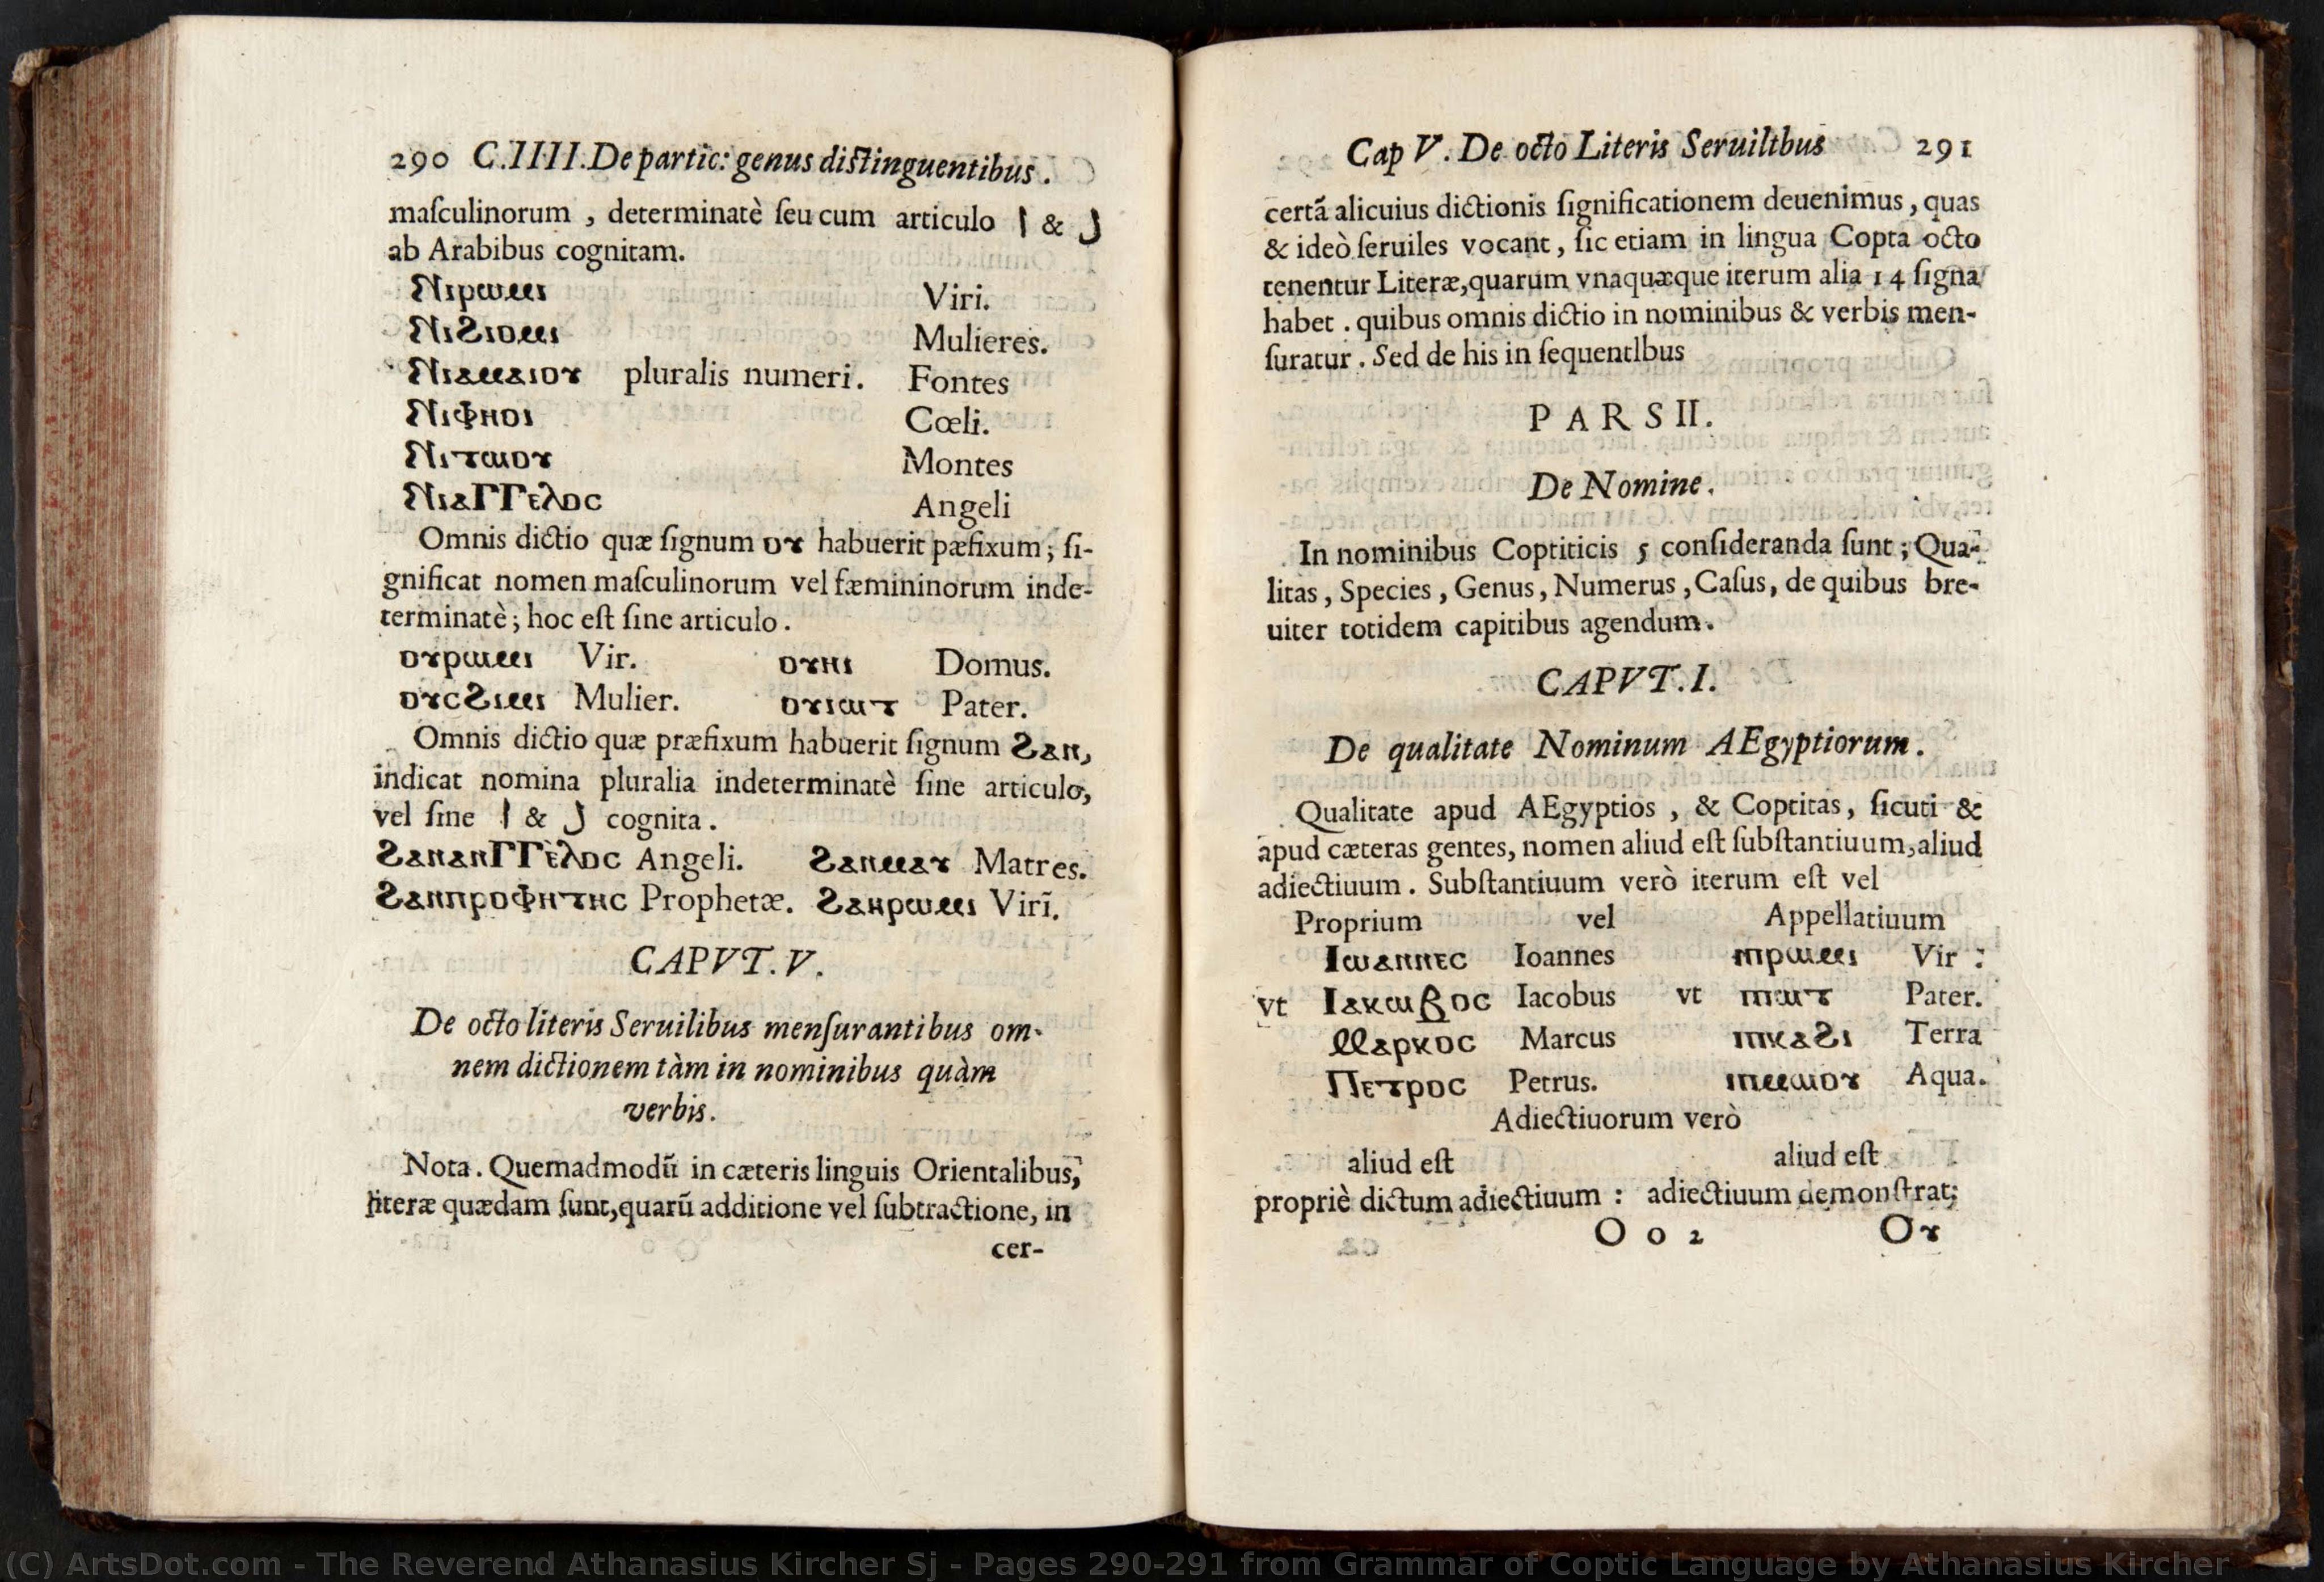 290 C.IIII.De partic: genus distinguentibus.
maſculinorum , determinatè ſeu cum articulo ا & ل
ab Arabibus cognitam.
Ⲛⲓⲣⲱⲙⲓ Viri.
Ⲛⲓϩⲓⲟⲙⲓ Mulieres.
Ⲛⲓⲁⲙⲁⲓⲟⲩ pluralis numeri. Fontes
Ⲛⲓⲫⲏⲟⲓ Cœli.
Ⲛⲓⲧⲱⲟⲩ Montes
Ⲛⲓⲁⲅⲅⲉⲗⲟⲥ Angeli
Omnis dictio quæ ſignum ⲟⲩ habuerit pæfixum; ſi-
gnificat nomen maſculinorum vel fæmininorum inde-
terminatè; hoc eſt ſine articulo.
ⲟⲩⲣⲱⲙⲓ Vir. ⲟⲩⲏⲓ Domus.
ⲟⲩⲥϩⲓⲙⲓ Mulier. ⲟⲩⲓⲱⲧ Pater.
Omnis dictio quæ præfixum habuerit ſignum ϩⲁⲛ,
indicat nomina pluralia indeterminatè ſine articulo,
vel ſine ا & ل cognita.
ϩⲁⲛⲁⲛⲅⲅⲉ̀ⲗⲟⲥ Angeli. ϩⲁⲛⲙⲁⲩ Matres.
ϩⲁⲛⲡⲣⲟⲫⲏⲧⲏⲥ Prophetæ. ϩⲁⲛⲣⲱⲙⲓ Viri.
CAPVT. V.
De octo literis Seruilibus menſurantibus om-
nem dictionem tàm in nominibus quàm
verbis.
Nota. Quemadmodũ in cæteris linguis Orientalibus,
literæ quædam ſunt,quarũ additione vel ſubtractione, in
cer-
Cap V. De octo Literis Seruilibus 291
certã alicuius dictionis ſignificationem deuenimus, quas
& ideò ſeruiles vocant, ſic etiam in lingua Copta octo
tenentur Literæ,quarum vnaquæque iterum alia 14 ſigna
habet . quibus omnis dictio in nominibus & verbis men-
ſuratur . Sed de his in ſequentlbus
PARS II.
De Nomine.
In nominibus Coptiticis 5 conſideranda ſunt; Qua-
litas, Species, Genus, Numerus, Caſus, de quibus bre-
uiter totidem capitibus agendum.
CAPVT. I.
De qualitate Nominum AEgyptiorum.
Qualitate apud AEgyptios , & Coptitas, ſicuti &
apud cæteras gentes, nomen aliud eſt ſubſtantiuum,aliud
adiectiuum. Subſtantiuum verò iterum eſt vel
Proprium vel Appellatiuum
Ⲓⲱⲁⲛⲛⲉⲥ Ioannes ⲡⲓⲣⲱⲙⲓ Vir :
vt Ⲓⲁⲕⲱⲃⲟⲥ Iacobus vt ⲡⲓⲱⲧ Pater.
Ⲙⲁⲣⲕⲟⲥ Marcus ⲡⲓⲕⲁϩⲓ Terra
Ⲡⲉⲧⲣⲟⲥ Petrus. ⲡⲓⲙⲱⲟⲩ Aqua.
Adiectiuorum verò
aliud eſt aliud eſt
propriè dictum adiectiuum : adiectiuum demonſtrat:
O o 2 Ⲟⲩ
(C) ArtsDot.com - The Reverend Athanasius Kircher Sj - Pages 290-291 from Grammar of Coptic Language by Athanasius Kircher